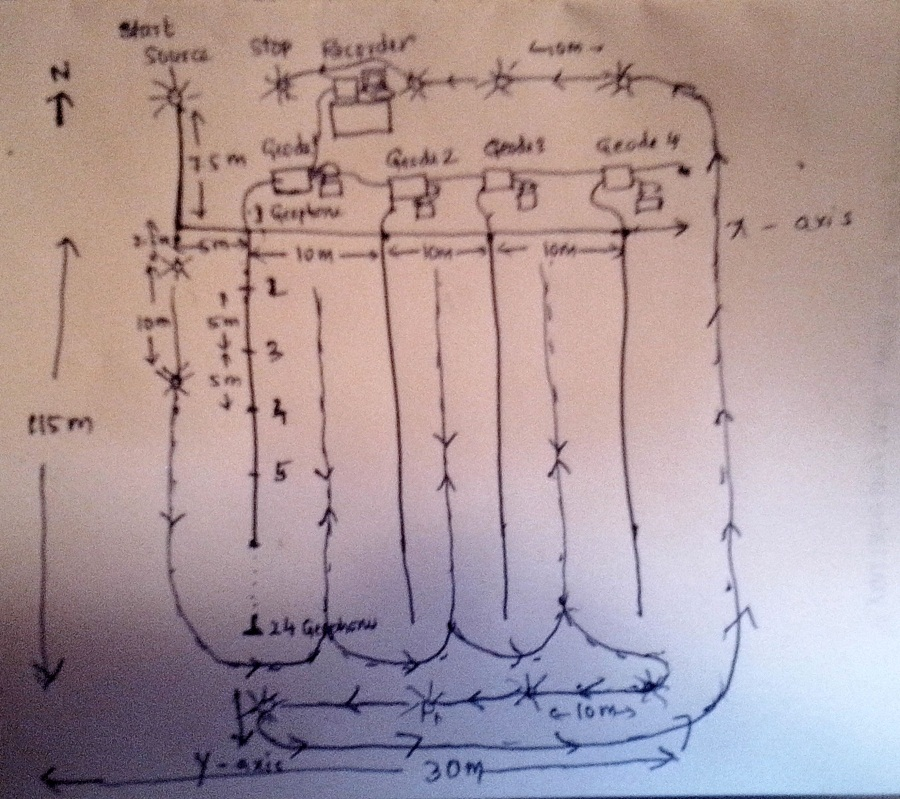 Start
Source
Stop
Recorder
←10m→
N
7.5m
Geode1
Geode2
Geode3
Geode 4
1 Geophone
x - axis
5m
10m
10m
10m
2
10m
5m
3
5m
4
115m
5
24 Geophone
←10m→
y-axis
30m